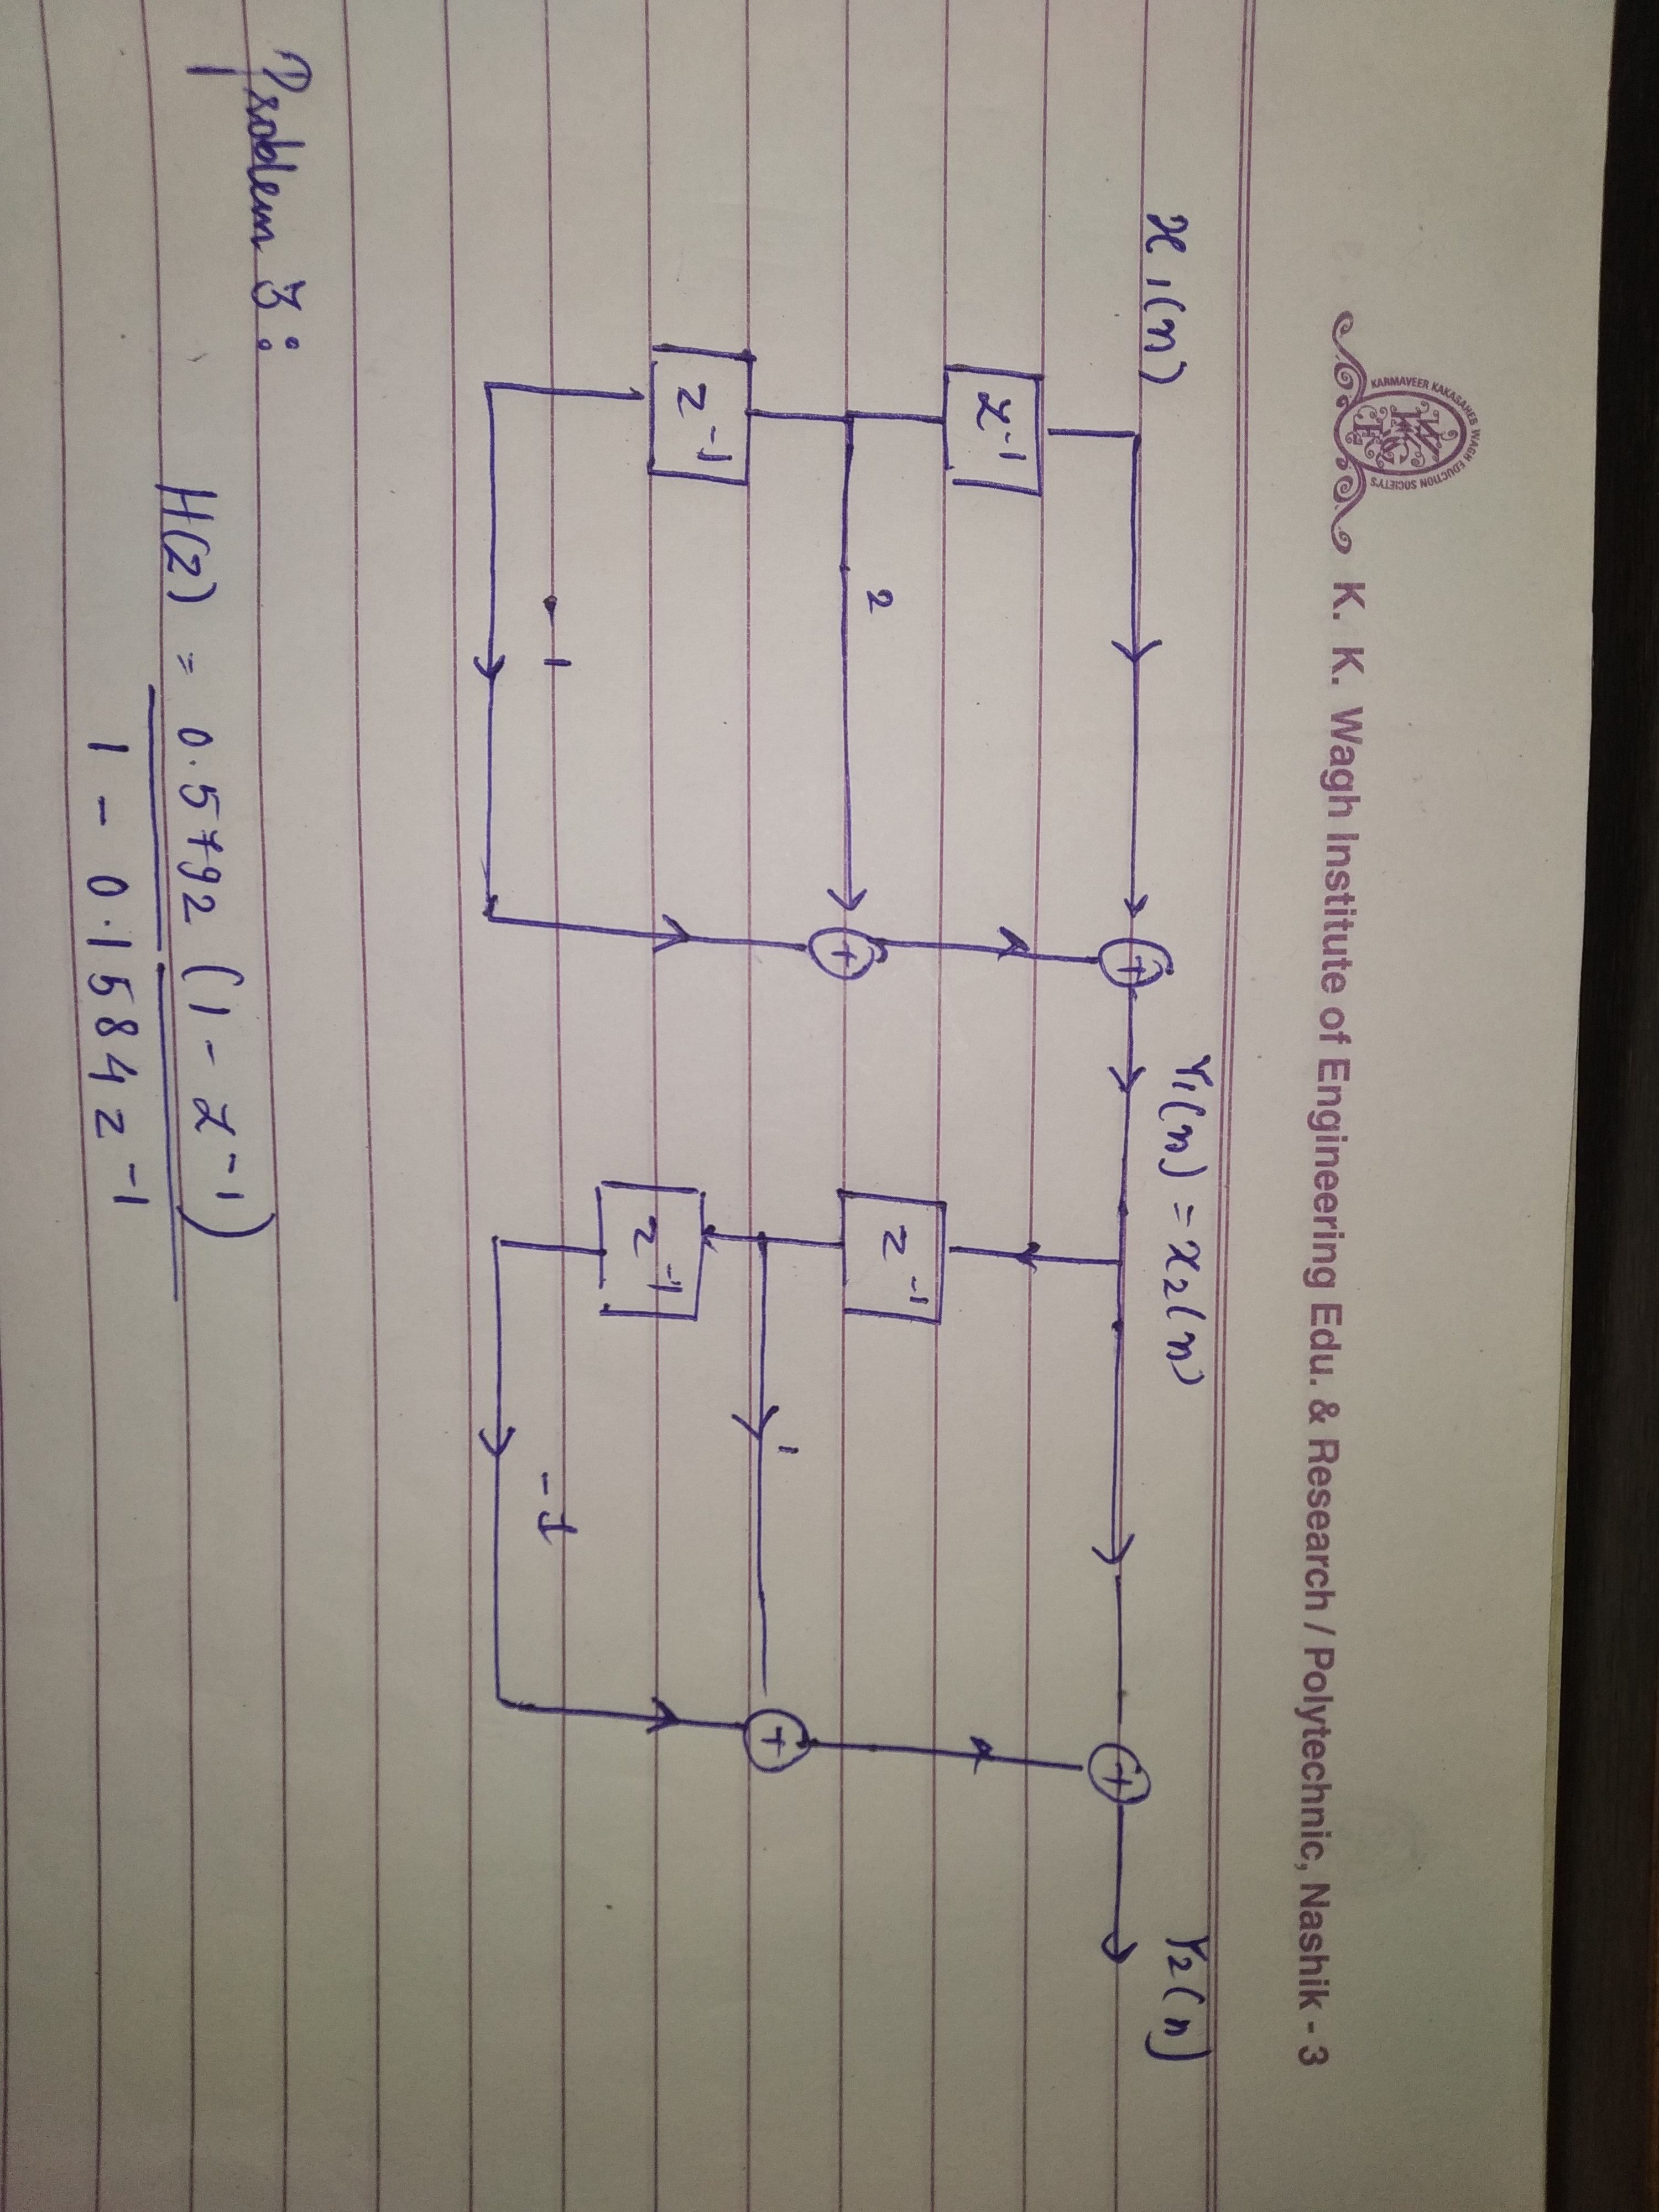 KARMAVEER KAKASAHEB WAGH EDUCTION SOCIETY'S
K. K. Wagh Institute of Engineering Edu. & Research / Polytechnic, Nashik - 3
x1(n) Y1(n) = x2(n) Y2(n)
z⁻¹ z⁻¹
2 1
z⁻¹ z⁻¹
1 -1
Problem 3:
H(z) = 0.5792 (1 - z⁻¹)
1 - 0.1584z⁻¹